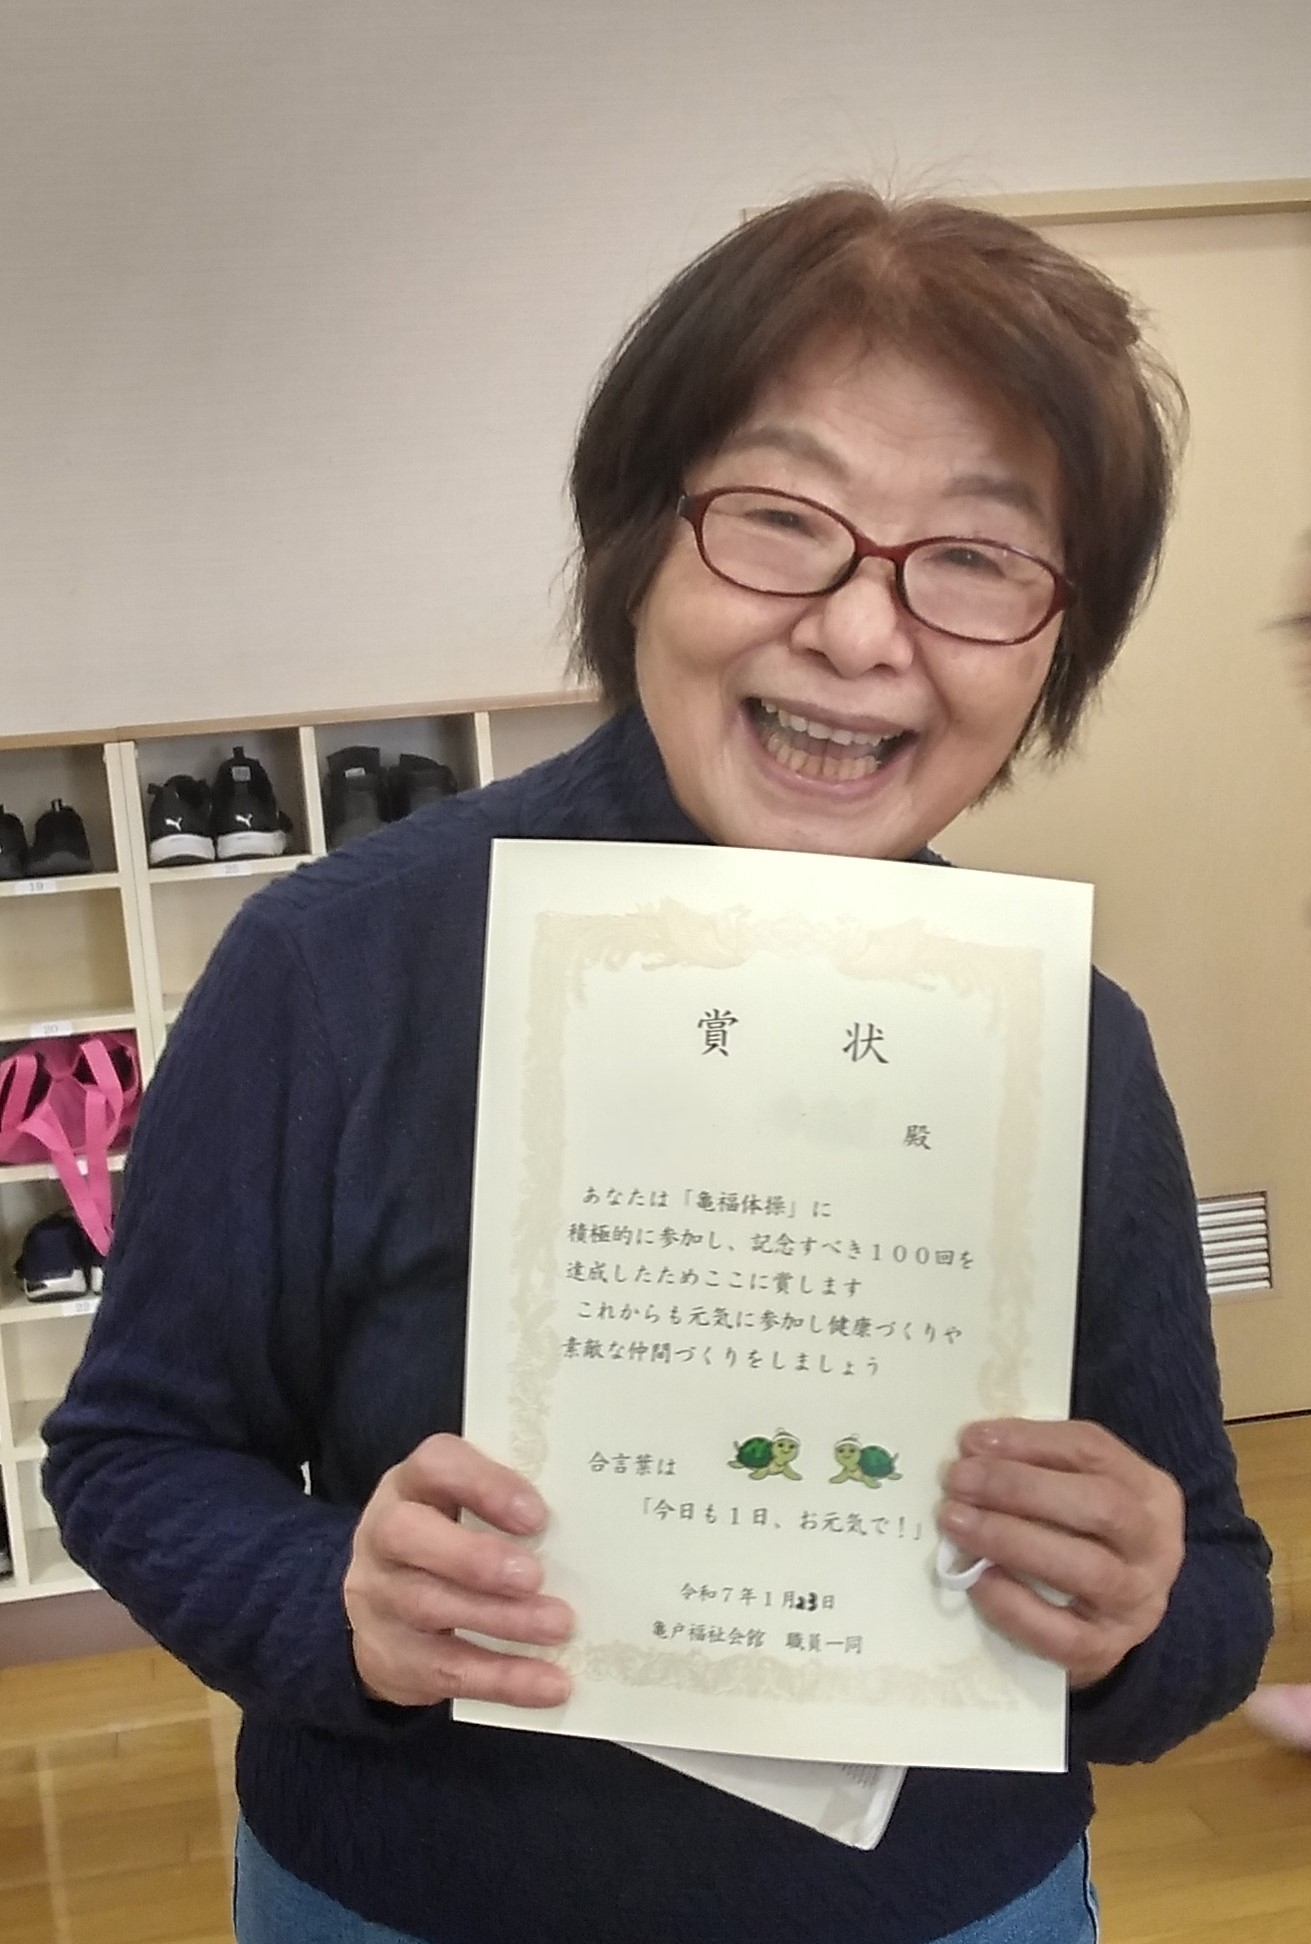 賞 状
殿
あなたは「亀福体操」に
積極的に参加し、記念すべき100回を
達成したためここに賞します
これからも元気に参加し健康づくりや
素敵な仲間づくりをしましょう
合言葉は
「今日も1日、お元気で!」
令和7年1月23日
亀戸福祉会館 職員一同
19
20